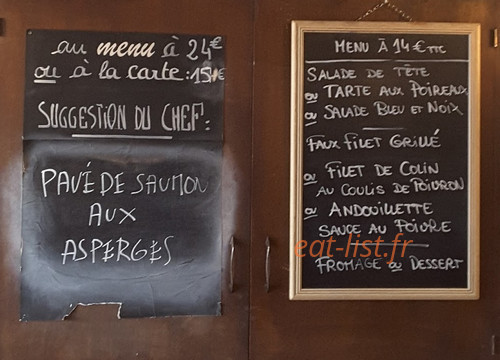 au menu à 24€
ou à la carte : 15€
SUGGESTION DU CHEF :
PAVÉ DE SAUMON
AUX
ASPERGES
MENU À 14€ TTC
SALADE DE TÊTE
ou TARTE AUX POIREAUX
ou SALADE BLEU ET NOIX
FAUX FILET GRILLÉ
ou FILET DE COLIN
AU COULIS DE POIVRON
ou ANDOUILLETTE
SAUCE AU POIVRE
eat-list.fr
FROMAGE ou DESSERT